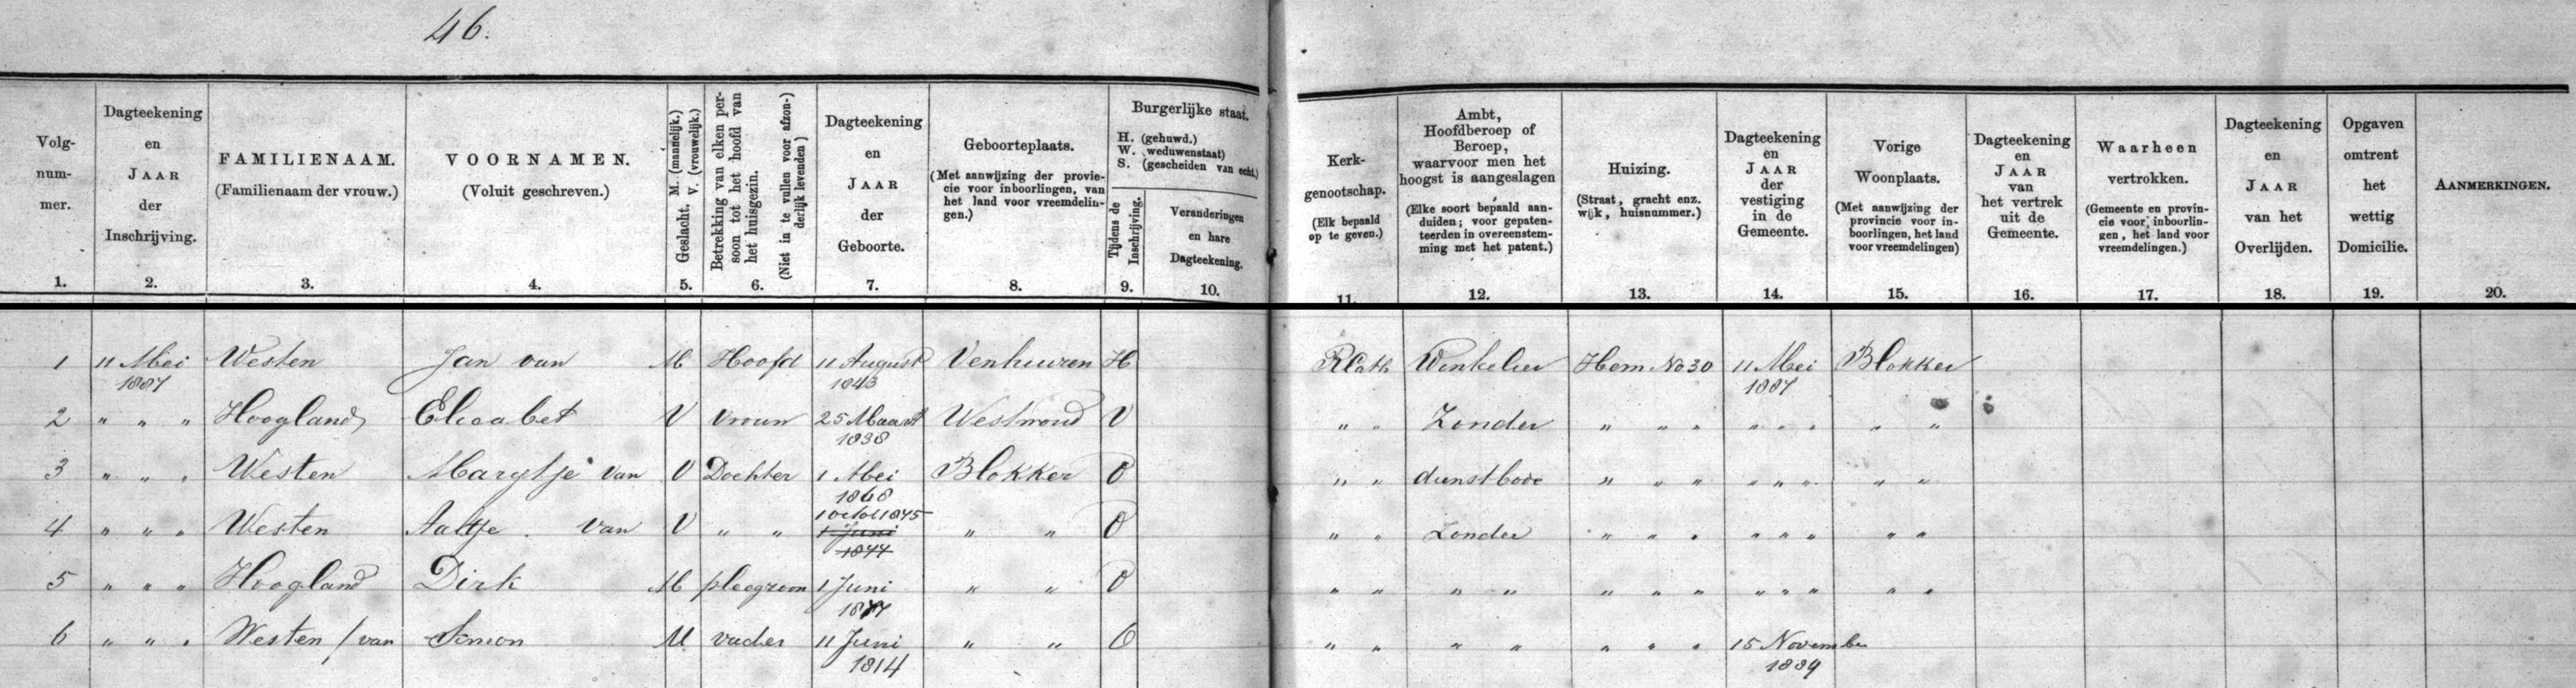 46.
Volg-
num-
mer.
1.
Dagteekening
en
JAAR
der
Inschrijving.
2.
FAMILIENAAM.
(Familienaam der vrouw.)
3.
VOORNAMEN.
(Voluit geschreven.)
4.
Geslacht. M. (mannelijk.)
V. (vrouwelijk.)
5.
Betrekking van elken per-
soon tot het hoofd van
het huisgezin.
(Niet in te vullen voor afzon-
derlijk levenden)
6.
Dagteekening
en
JAAR
der
Geboorte.
7.
Geboorteplaats.
(Met aanwijzing der provin-
cie voor inboorlingen, van
het land voor vreemdelin-
gen.)
8.
Burgerlijke staat.
H. (gehuwd.)
W. (weduwenstaat)
S. (gescheiden van echt.)
Tijdens de
Inschrijving.
9.
Veranderingen
en hare
Dagteekening.
10.
Kerk-
genootschap.
(Elk bepaald
op te geven.)
11.
Ambt,
Hoofdberoep of
Beroep,
waarvoor men het
hoogst is aangeslagen
(Elke soort bepaald aan-
duiden; voor gepaten-
teerden in overeenstem-
ming met het patent.)
12.
Huizing.
(Straat, gracht enz.
wijk, huisnummer.)
13.
Dagteekening
en
JAAR
der
vestiging
in de
Gemeente.
14.
Vorige
Woonplaats.
(Met aanwijzing der
provincie voor in-
boorlingen, het land
voor vreemdelingen)
15.
Dagteekening
en
JAAR
van
het vertrek
uit de
Gemeente.
16.
Waarheen
vertrokken.
(Gemeente en provin-
cie voor inboorlin-
gen, het land voor
vreemdelingen.)
17.
Dagteekening
en
JAAR
van het
Overlijden.
18.
Opgaven
omtrent
het
wettig
Domicilie.
19.
AANMERKINGEN.
20.
1 11 Mei 1887 Westen Jan van M Hoofd 11 August 1843 Venhuizen H R Cath Winkelier Hem No 30 11 Mei 1887 Blokker
2 " " " Hoogland Elisabet V vrouw 25 Maart 1838 Westwoud V " " Zonder " " " " " " " "
3 " " " Westen Marytje van V Dochter 1 Mei 1868 Blokker O " " dienstbode " " " " " " " "
4 " " " Westen Aaltje van V " " 1 Octob 1875 1 Juni 1877 " " O " " Zonder " " " " " " " "
5 " " " Hoogland Dirk M pleegzoon 1 Juni 1877 " " O " " " " " " " " " " " "
6 " " " Westen / van Simon M vader 11 Juni 1814 " " O " " " " " " " 15 November 1889